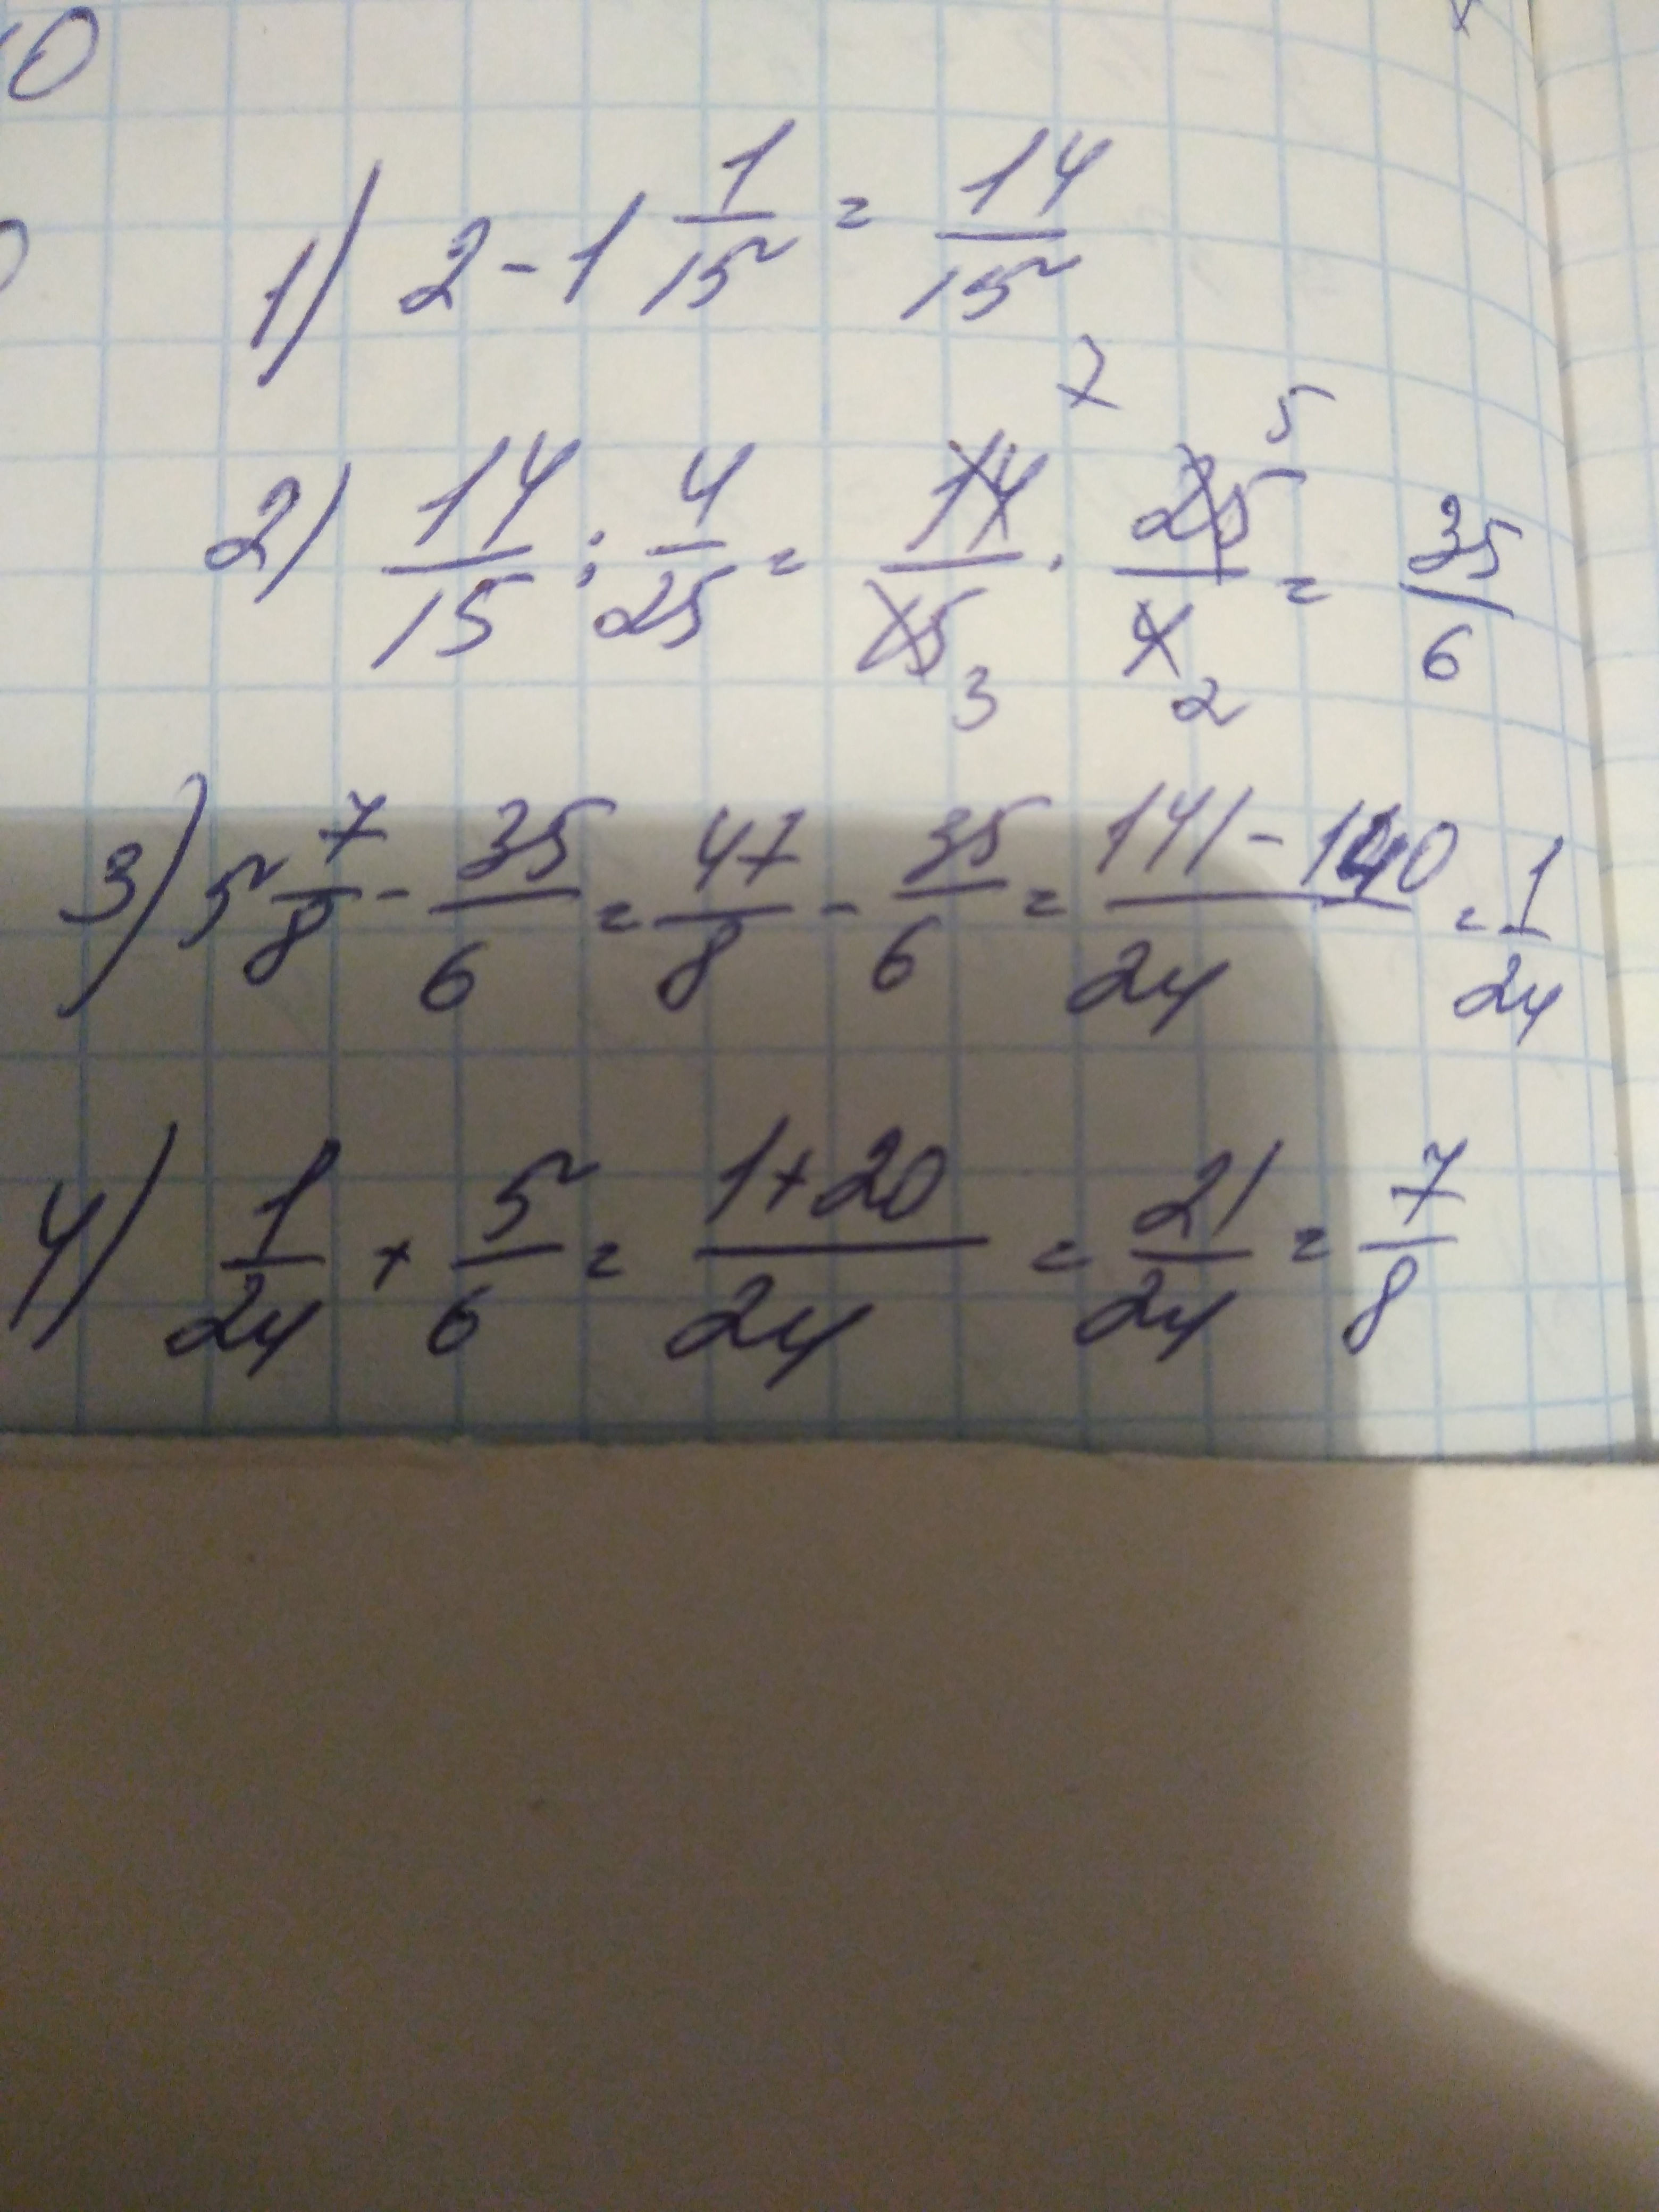 1) 2 - 1 1/15 = 14/15
2) 14/15 : 4/25 = 14/15 7 3 · 25/4 5 2 = 35/6
3) 5 7/8 - 35/6 = 47/8 - 35/6 = 141 - 140/24 = 1/24
4) 1/24 + 5/6 = 1 + 20/24 = 21/24 = 7/8